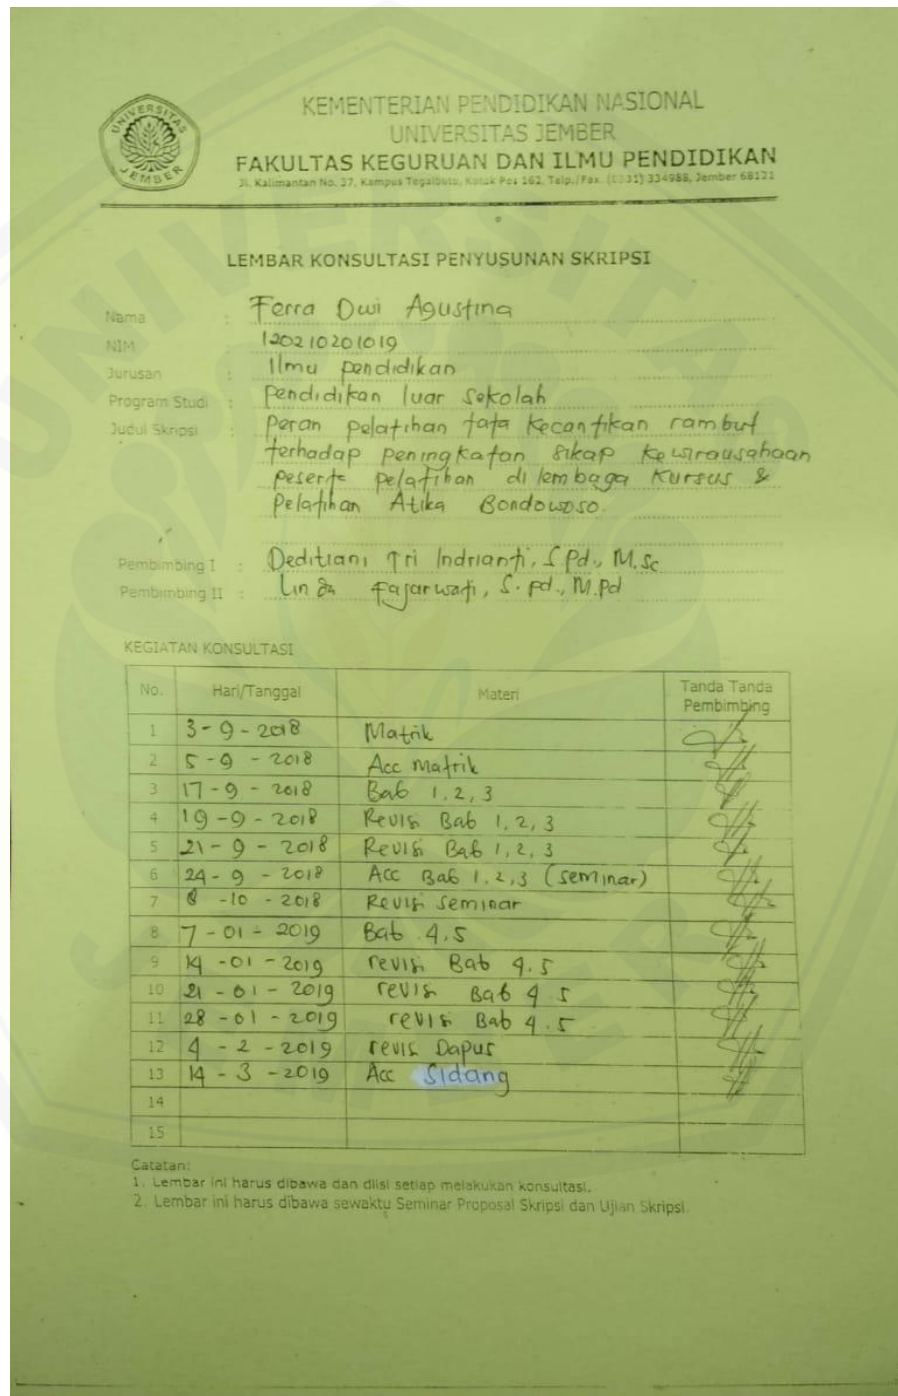 UNIVERSITAS
JEMBER
KEMENTERIAN PENDIDIKAN NASIONAL
UNIVERSITAS JEMBER
FAKULTAS KEGURUAN DAN ILMU PENDIDIKAN
Jl. Kalimantan No. 37, Kampus Tegalboto, Kotak Pos 162, Telp./Fax. (0331) 334988, Jember 68121
LEMBAR KONSULTASI PENYUSUNAN SKRIPSI
Nama : Ferra Dwi Agustina
NIM 120210201019
Jurusan : Ilmu pendidikan
Program Studi : Pendidikan luar sekolah
Judul Skripsi : Peran pelatihan tata kecantikan rambut
terhadap peningkatan sikap kewirausahaan
peserta pelatihan di lembaga Kursus &
Pelatihan Atika Bondowoso.
Pembimbing I : Deditiani Tri Indrianti, S.Pd., M.Sc
Pembimbing II : Linda Fajarwati, S.pd., M.Pd
KEGIATAN KONSULTASI
No. Hari/Tanggal Materi Tanda Tanda
Pembimbing
1 3-9-2018 Matrik
2 5-9-2018 Acc Matrik
3 17-9-2018 Bab 1,2,3
4 19-9-2018 Revisi Bab 1,2,3
5 21-9-2018 Revisi Bab 1,2,3
6 24-9-2018 Acc Bab 1,2,3 (seminar)
7 8-10-2018 Revisi Seminar
8 7-01-2019 Bab 4,5
9 14-01-2019 revisi Bab 4.5
10 21-01-2019 revisi Bab 4 5
11 28-01-2019 revisi Bab 4.5
12 4-2-2019 revisi Dapus
13 14-3-2019 Acc Sidang
14
15
Catatan:
1. Lembar ini harus dibawa dan diisi setiap melakukan konsultasi.
2. Lembar ini harus dibawa sewaktu Seminar Proposal Skripsi dan Ujian Skripsi.